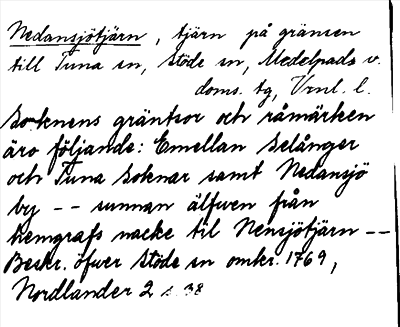 Nedansjötjärn, tjärn på gränsen
till Tuna sn, Stöde sn, Medelpads v.
doms. tg, Vrnl. l.
Soknens gräntsor och råmärken
äro följande: Emellan Selånger
och Tuna Soknar samt Nedansjö
by -- sunnan älfwen från
nacke til Nensjötjärn --
Beskr. öfwer Stöde sn omkr. 1769,
Nordlander 2 s. 38